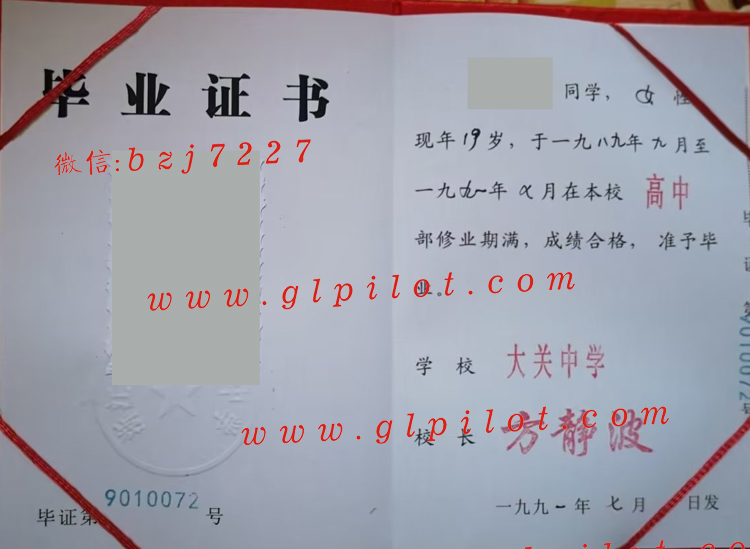 毕业证书
微信:bzj7227
www.glpilot.com
www.glpilot.com
毕证第9010072号
同学，女性
现年19岁，于一九八九年九月至
一九九一年七月在本校高中
部修业期满，成绩合格，准予毕
业。
学校 大关中学
校长 方静波
一九九一年七月 日发
毕证第9010072号